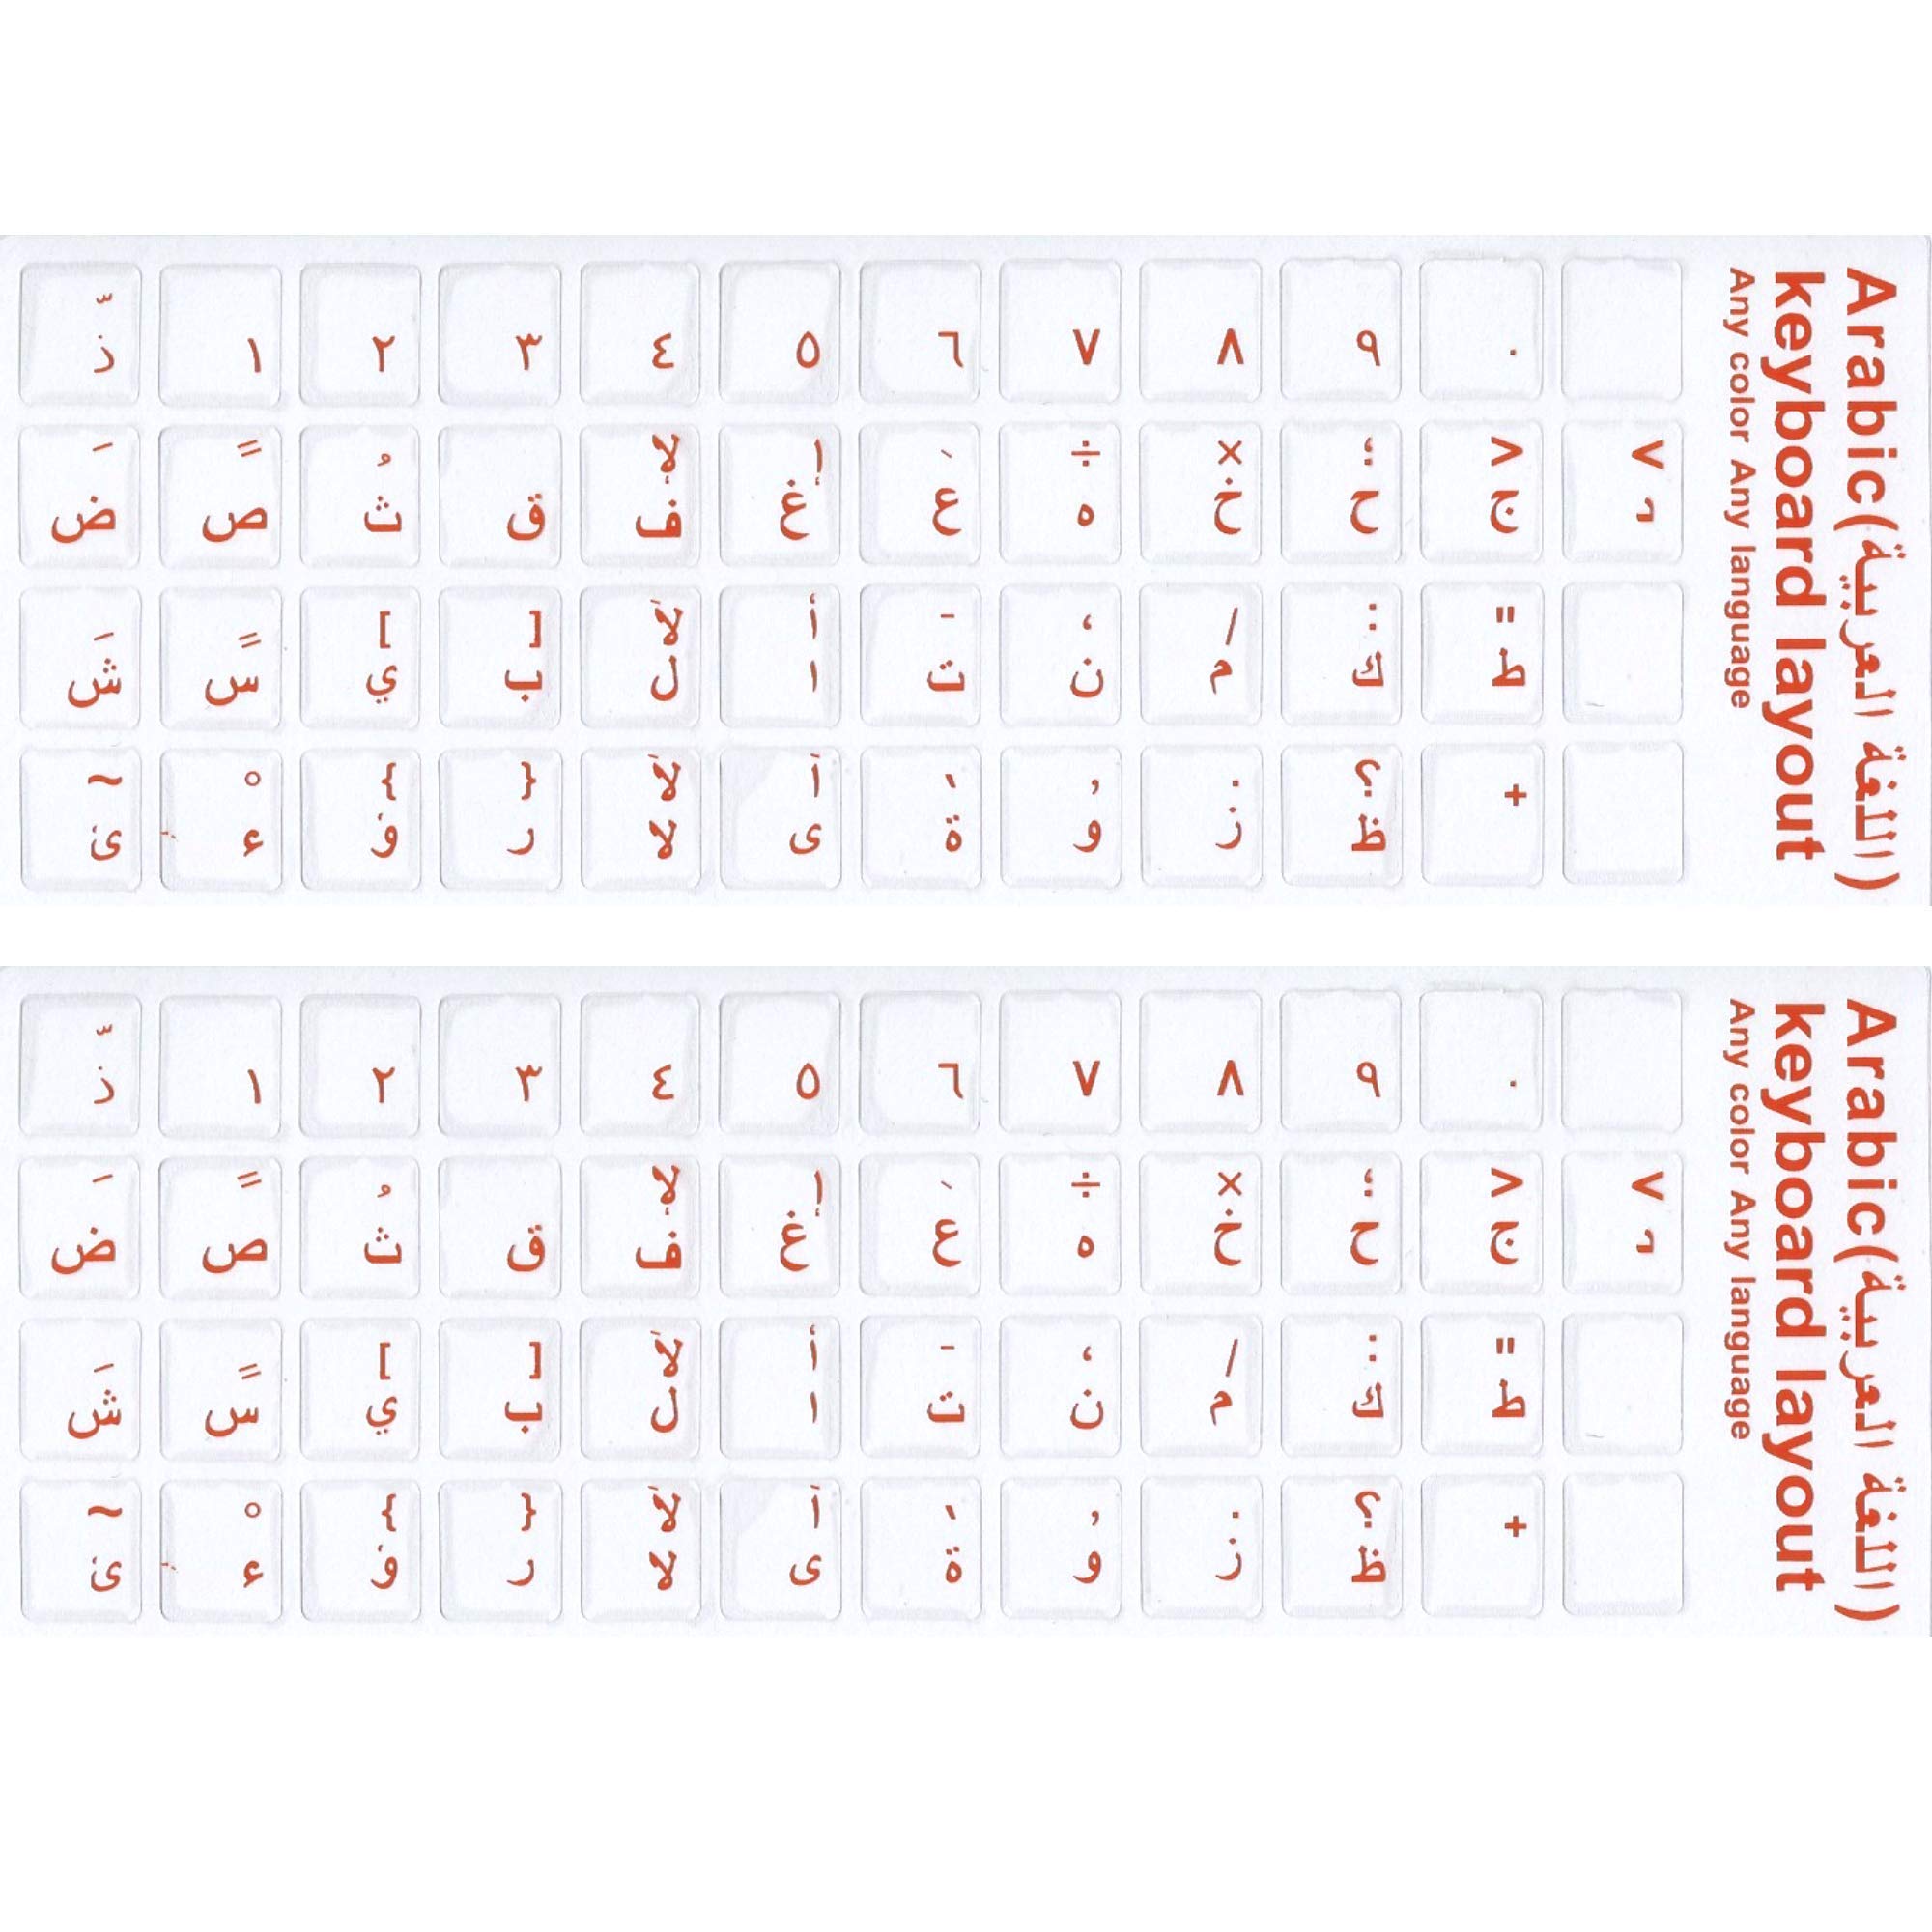 ّ
ذ ١ ٢ ٣ ٤ ٥ ٦ ٧ ٨ ٩ ٠
َ ً ُ لإ إ ‘ ÷ × ؛ < >
ض ص ث ق ف غ ع ه خ ح ج د
ِ ٍ ] [ لأ أ ـ ، / : "
ش س ي ب ل ا ت ن م ك ط
~ ْ { } لآ آ ’ , . ؟ +
ئ ء ؤ ر لا ى ة و ز ظ
Arabic(اللغة العربية)
keyboard layout
Any color Any language
ّ
ذ ١ ٢ ٣ ٤ ٥ ٦ ٧ ٨ ٩ ٠
َ ً ُ لإ إ ‘ ÷ × ؛ < >
ض ص ث ق ف غ ع ه خ ح ج د
ِ ٍ ] [ لأ أ ـ ، / : "
ش س ي ب ل ا ت ن م ك ط
~ ْ { } لآ آ ’ , . ؟ +
ئ ء ؤ ر لا ى ة و ز ظ
Arabic(اللغة العربية)
keyboard layout
Any color Any language